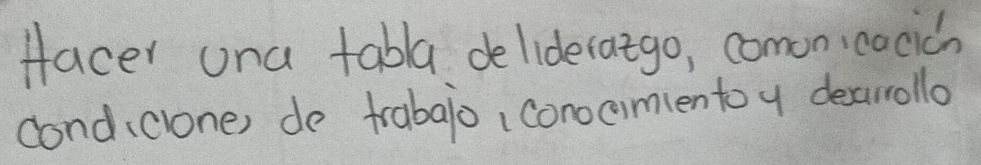 Hacer una tabla de liderazgo, comunicación
condiciones de trabajo, conocimiento y desarrollo